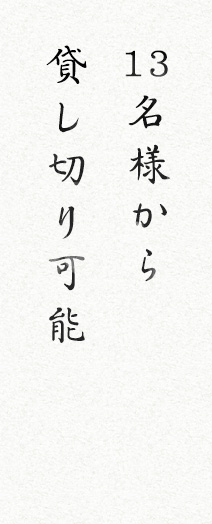 13名様から
貸し切り可能